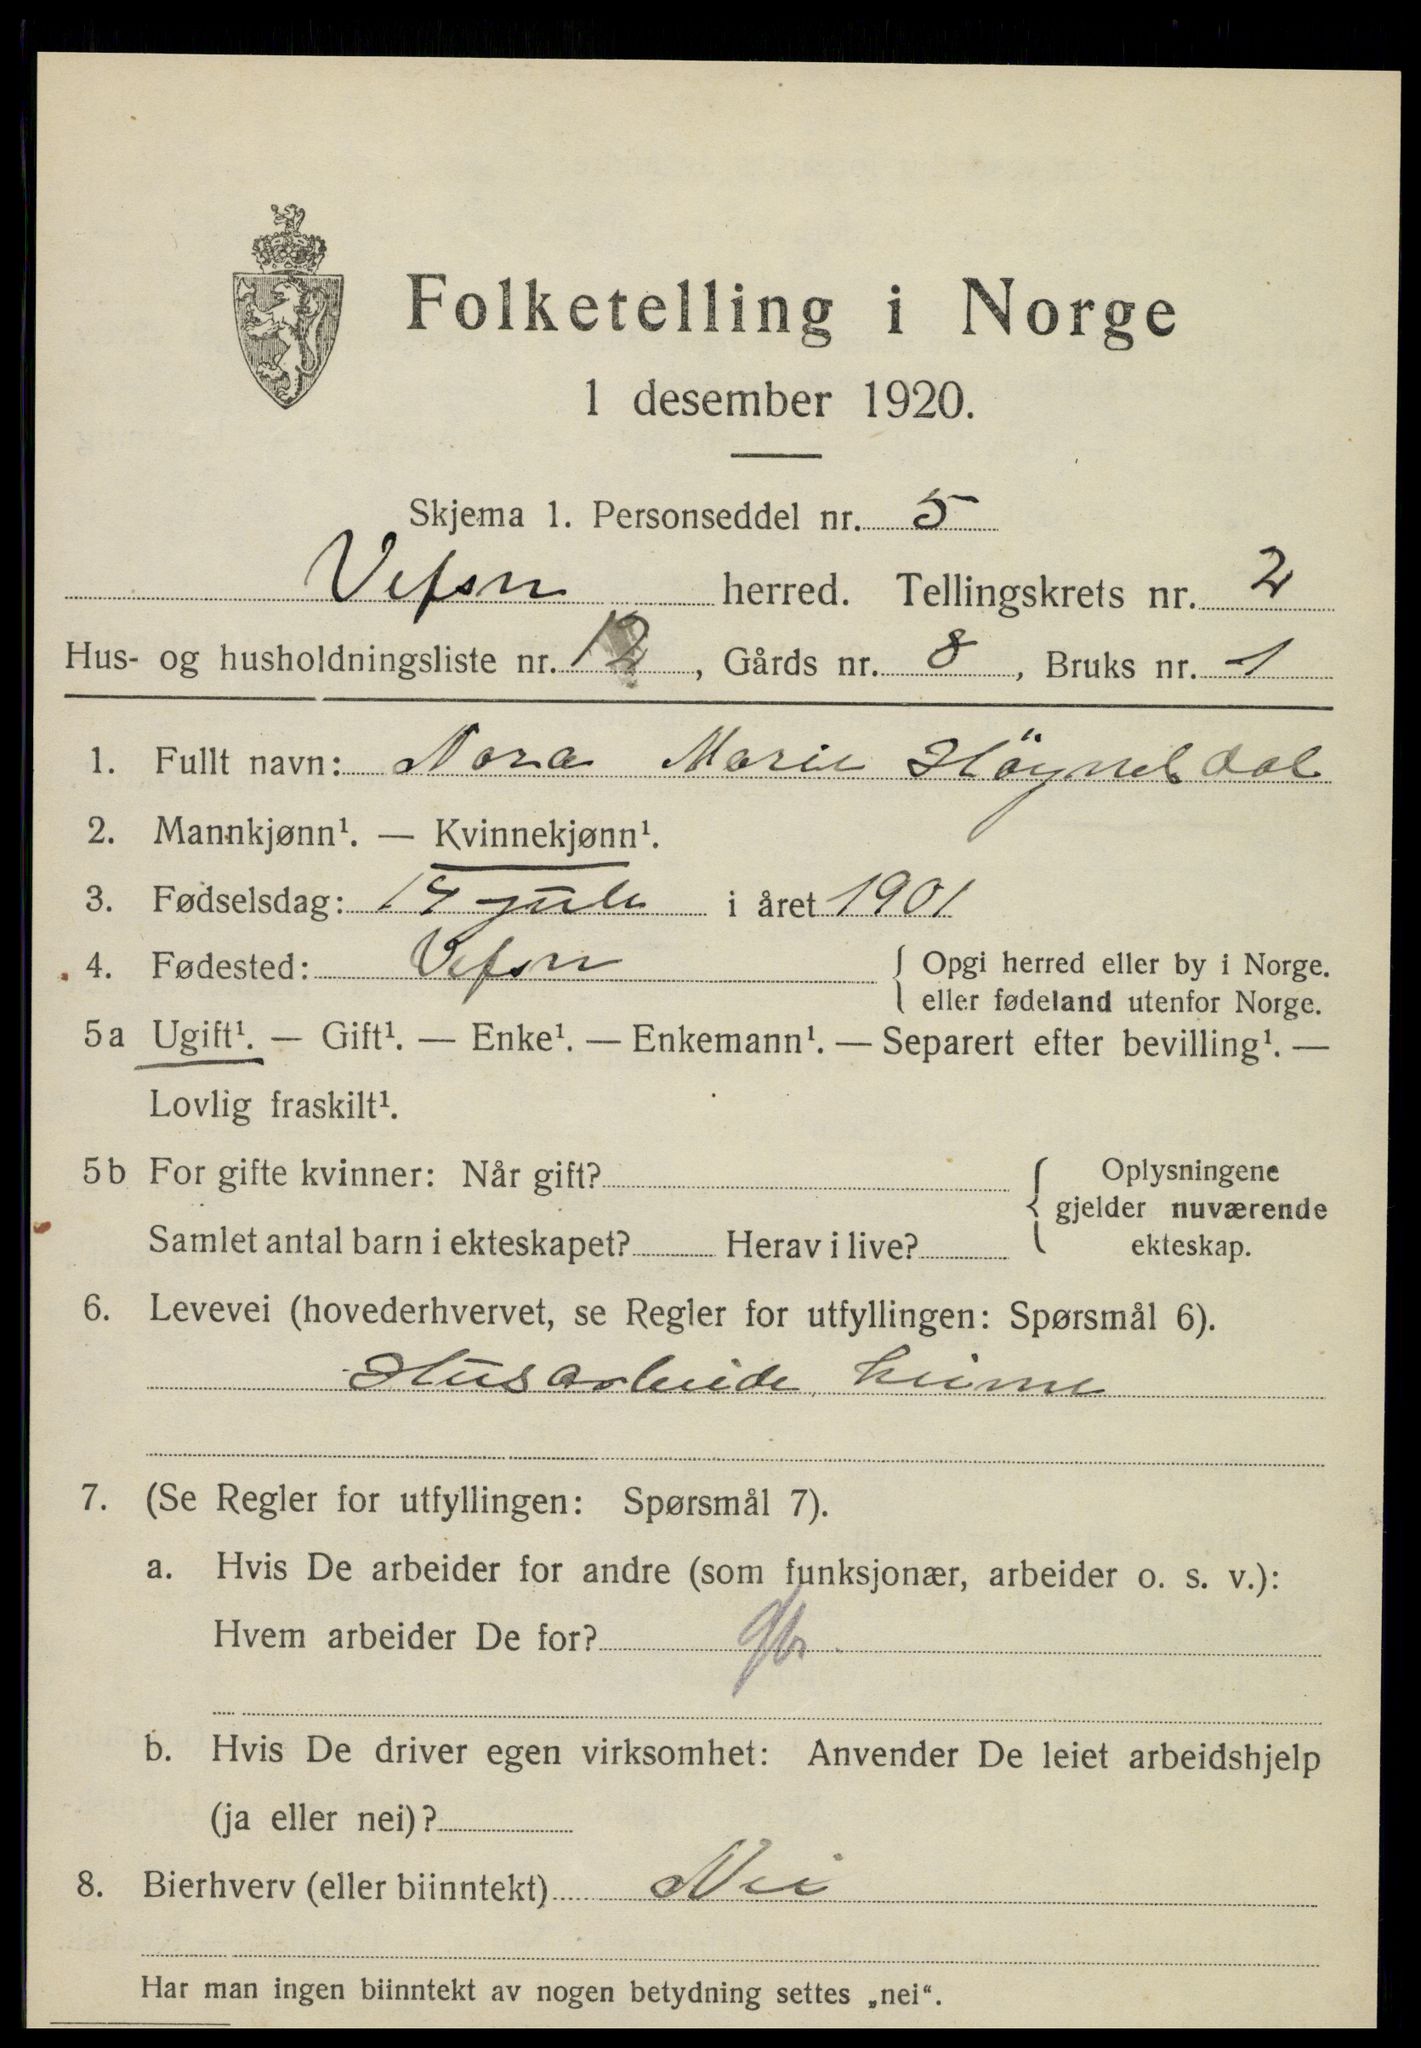 Folketelling i Norge
1 desember 1920.
Skjema 1. Personseddel nr. 5
Vefsn herred. Tellingskrets nr. 2
Hus- og husholdningsliste nr. 12, Gårds nr. 8, Bruks nr. 1
1. Fullt navn: Nora Marie
2. Mannkjønn¹. — Kvinnekjønn¹.
3. Fødselsdag: 14 juli i året 1901
4. Fødested: Vefsn { Opgi herred eller by i Norge.
eller fødeland utenfor Norge.
5a Ugift¹. — Gift¹. — Enke¹. — Enkemann¹. — Separert efter bevilling¹. —
Lovlig fraskilt¹.
5b For gifte kvinner: Når gift? { Oplysningene
gjelder nuværende
Samlet antal barn i ekteskapet? Herav i live? ekteskap.
6. Levevei (hovederhvervet, se Regler for utfyllingen: Spørsmål 6).
Husarbeide, heime
7. (Se Regler for utfyllingen: Spørsmål 7).
a. Hvis De arbeider for andre (som funksjonær, arbeider o. s. v.):
Hvem arbeider De for?
b. Hvis De driver egen virksomhet: Anvender De leiet arbeidshjelp
(ja eller nei)?
8. Bierhverv (eller biinntekt) Nei
Har man ingen biinntekt av nogen betydning settes „nei“.